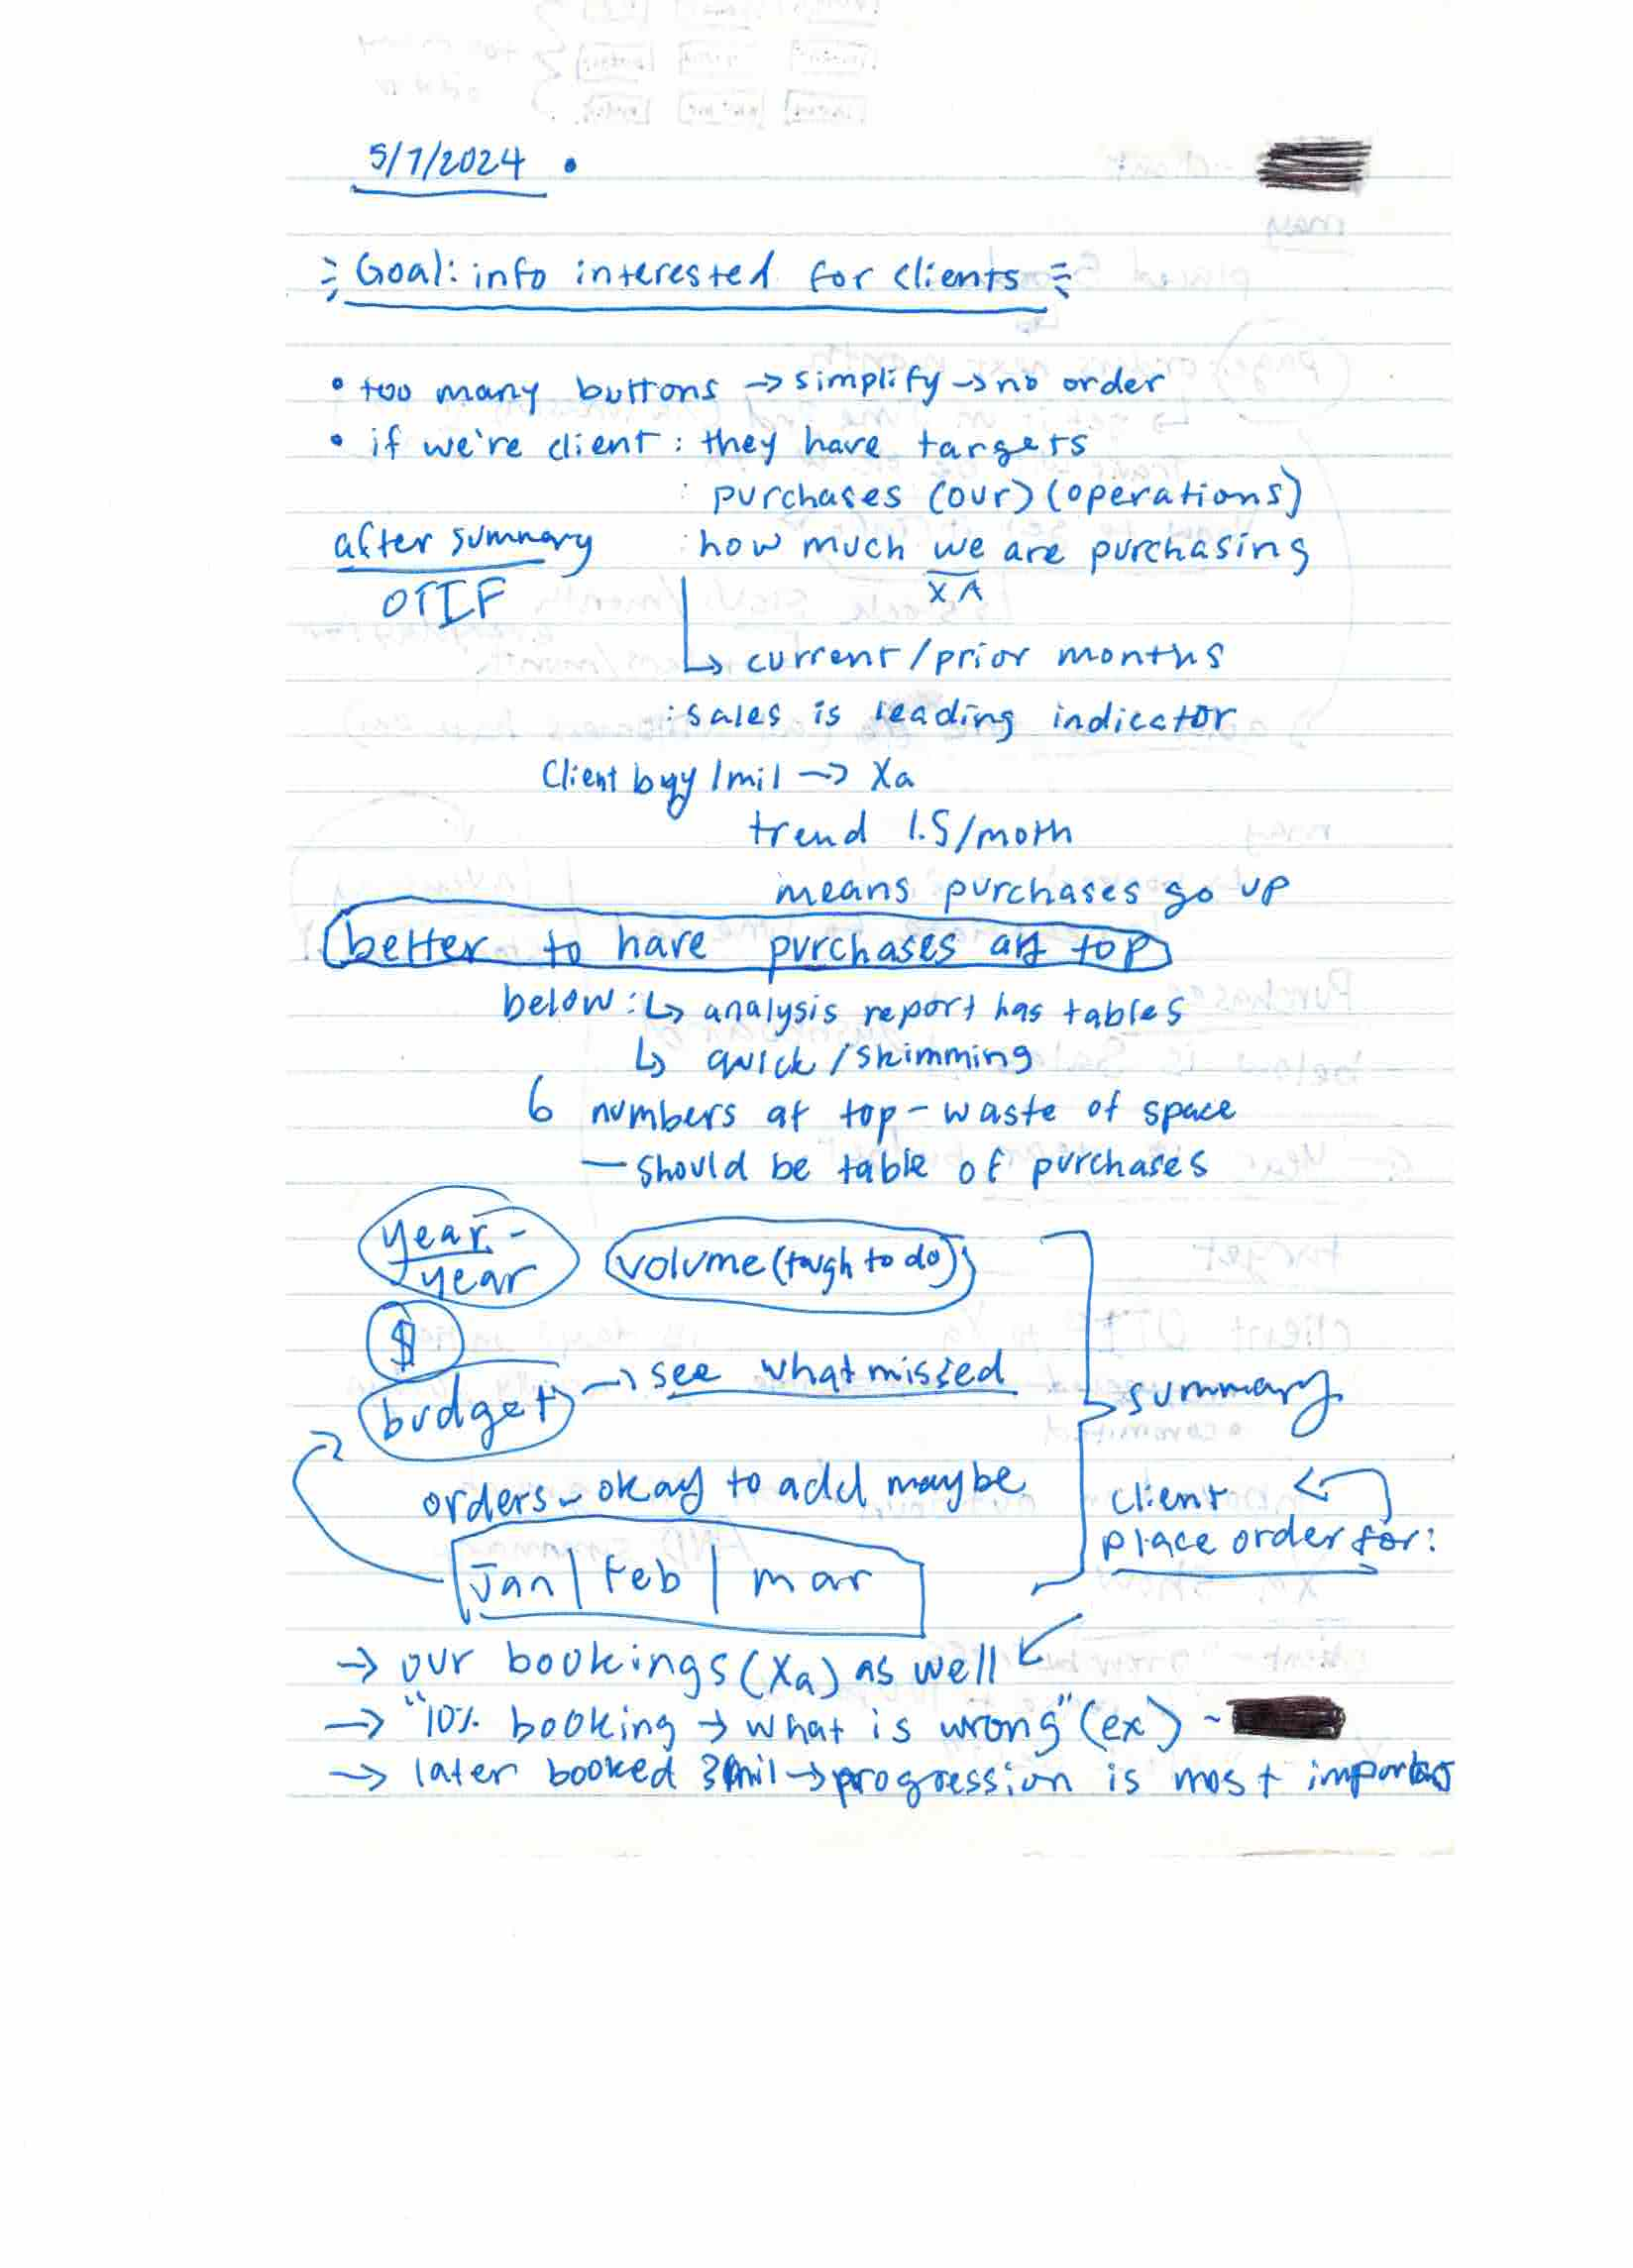 5/7/2024 •
Goal: info interested for clients
• too many buttons → simplify → no order
• if we're client : they have targets
: purchases (our) (operations)
after summary
OTIF
: how much we are purchasing
XA
↳ current/prior months
: sales is leading indicator
Client buy 1mil → Xa
trend 1.5/moth
means purchases go up
better to have purchases at top
below: ↳ analysis report has tables
↳ quick/skimming
6 numbers at top - waste of space
— should be table of purchases
year-
year
volume (tough to do)
$
budget → see what missed
summary
orders - okay to add maybe
client
place order for:
Jan | Feb | mar
→ our bookings (Xa) as well
→ "10% booking → what is wrong" (ex) -
→ later booked mil → progression is most important